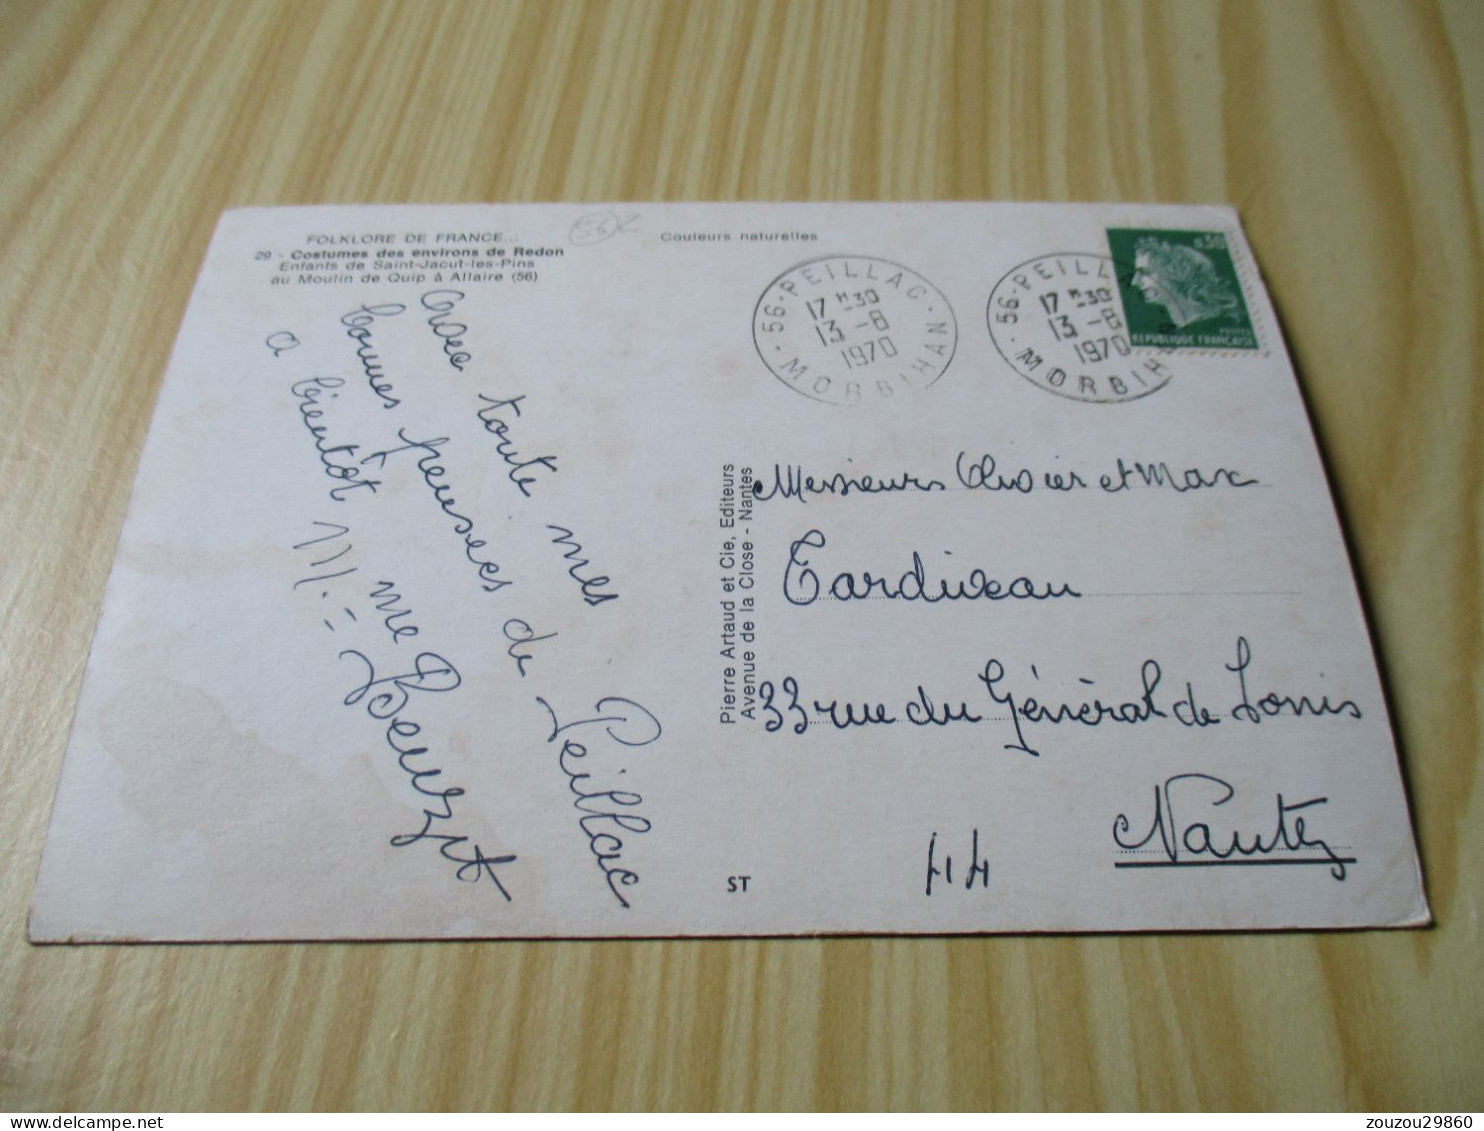 FOLKLORE DE FRANCE...
29 - Costumes des environs de Redon
Enfants de Saint-Jacut-les-Pins
au Moulin de Quip à Allaire (56)
Couleurs naturelles
56 - PEILLAC - MORBIHAN
17 H30
13 - 8
1970
56 - PEILLAC - MORBIHAN
17 H30
13 - 8
1970
0,30
POSTES
REPUBLIQUE FRANÇAISE
Avec toute mes
bonnes pensées de Peillac
a bientôt me
M. =
Pierre Artaud et Cie, Editeurs
Avenue de la Close - Nantes
Messieurs Olivier et Max
Tardiveau
33 rue du Général de Sonis
44 Nantes
ST
zouzou29860